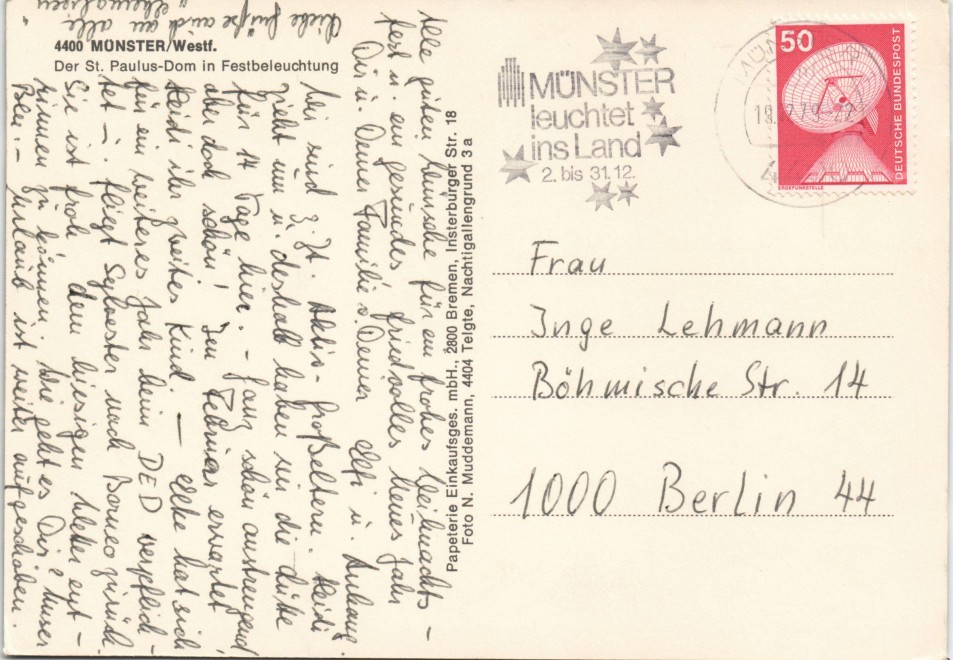 4400 MÜNSTER/Westf.
Der St. Paulus-Dom in Festbeleuchtung
Alle guten Wünsche für ein frohes Weihnachts-
fest u. ein gesundes friedvolles Neues Jahr
Dir u. Deiner Familie v. Deiner Elfi u. Anhang.
Wir sind z. Zt. Aktiv-Großeltern. Heidi
zieht um u. deshalb haben wir die
für 14 Tage hier. - Ganz schön anstrengend
aber doch schön! Im Februar erwartet
Heidi ihr zweites Kind. — Elke hat sich
für ein weiteres Jahr beim DED verpflich-
tet -. fliegt Sylvester nach Borneo zurück
Sie ist froh dem hiesigen Wetter ent-
rinnen zu können. Wie geht es Dir? Unser
Urlaub ist weiter aufgeschoben.
Liebe Grüße auch an alle
"Ehemaligen
Papeterie Einkaufsges. mbH., 2800 Bremen, Insterburger Str. 18
Foto N. Muddemann, 4404 Telgte, Nachtigallengrund 3 a
MÜNSTER
leuchtet
ins Land
2. bis 31.12.
50
DEUTSCHE BUNDESPOST
ERDEFUNKSTELLE
Frau
Inge Lehmann
Böhmische Str. 14
1000 Berlin 44